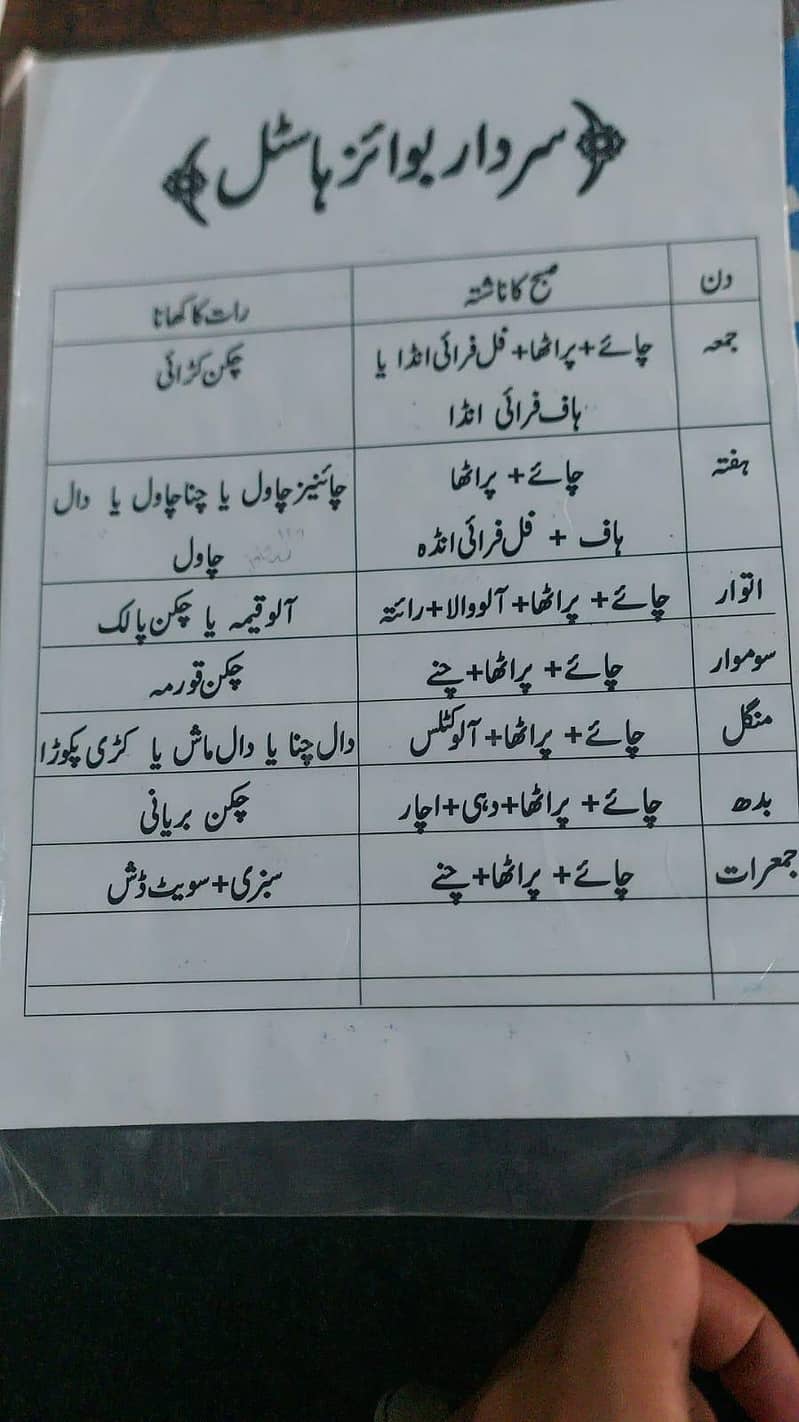 سردار بوائز ہاسٹل
دن صبح کا ناشتہ رات کا کھانا
جمعہ چائے+پراٹھا+فل فرائی انڈا یا چکن کڑائی
ہاف فرائی انڈا
ہفتہ چائے+ پراٹھا چائنیز چاول یا چنا چاول یا دال
ہاف + فل فرائی انڈہ چاول
اتوار چائے+ پراٹھا+آلو والا+رائتہ آلو قیمہ یا چکن پالک
سوموار چائے+ پراٹھا+چنے چکن قورمہ
منگل چائے+ پراٹھا+آلو کٹلس دال چنا یا دال ماش یا کڑی پکوڑا
بدھ چائے+ پراٹھا+دہی+اچار چکن بریانی
جمعرات چائے+ پراٹھا+چنے سبزی+سویٹ ڈش